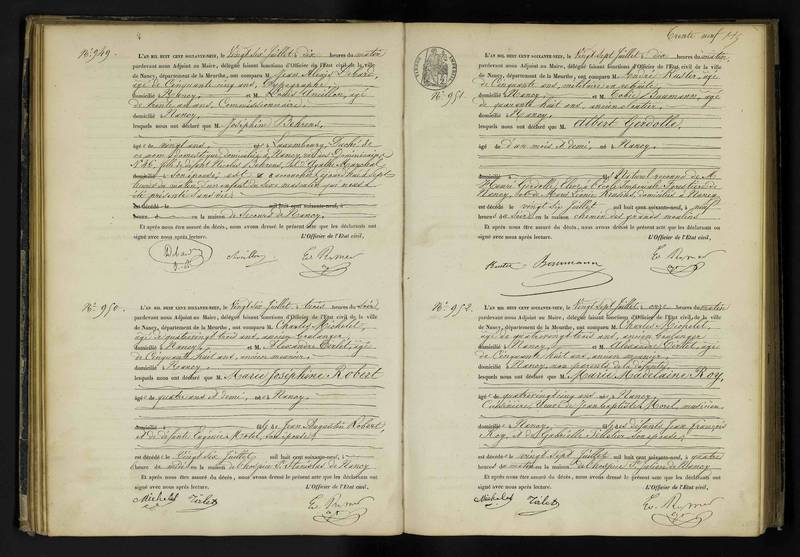 No. 949.
L'AN MIL HUIT CENT SOIXANTE-NEUF, le Vingt six Juillet à dix heures du matin
pardevant nous Adjoint au Maire, délégué faisant fonctions d'Officier de l'Etat civil de la ville
de Nancy, département de la Meurthe, ont comparu M. Jean Alexis
âgé de Cinquante cinq ans, Typographe,
domicilié Nancy et M. Louis Urvillon, âgé
de trente un ans, Commissionnaire,
domicilié Nancy,
lesquels nous ont déclaré que M. Joséphine Behrens,
âgé de vingt ans, né à Luxembourg, Duché de
ce nom, domestique, domiciliée à Nancy, rue des Dominicains,
No. 46, fille de défunt Nicolas Behrens, et d'Agathe
domicilié son épouse, est accouchée
heures du matin, d'un enfant de sexe masculin qui nous a
été présenté sans vie.
est décédé le mil huit cent soixante-neuf, à
heure du en la maison de Secours de Nancy.
Et après nous être assuré du décès, nous avons dressé le présent acte que les déclarants ont
signé avec nous après lecture. L'Officier de l'Etat civil,
No. 950.
L'AN MIL HUIT CENT SOIXANTE-NEUF, le Vingt six Juillet à trois heures du soir
pardevant nous Adjoint au Maire, délégué faisant fonctions d'Officier de l'Etat civil de la ville
de Nancy, département de la Meurthe, ont comparu M. Charles Michelet,
âgé de quatre vingt trois ans, ancien boulanger,
domicilié Nancy et M. Alexandre Tirlet, âgé
de Cinquante huit ans, ancien meunier,
domicilié Nancy,
lesquels nous ont déclaré que M. Marie Joséphine Robert
âgé de quatre ans et demi, né à Nancy,
domicilié fille de Jean Augustin Robert,
et de défunte Eugénie, son épouse,
est décédé le Vingt six Juillet mil huit cent soixante-neuf, à
heure de midi en la maison de l'hospice St. Stanislas de Nancy
Et après nous être assuré du décès, nous avons dressé le présent acte que les déclarants ont
signé avec nous après lecture. L'Officier de l'Etat civil,
Michelet Tirlet
Trente neuf
No. 951.
L'AN MIL HUIT CENT SOIXANTE-NEUF, le Vingt sept Juillet à dix heures du matin,
pardevant nous Adjoint au Maire, délégué faisant fonctions d'Officier de l'Etat civil de la ville
de Nancy, département de la Meurthe, ont comparu M. Kuster, âgé
de Cinquante ans, militaire en retraite,
domicilié Nancy et M. Tobie Baumann, âgé
de quarante huit ans, ancien
domicilié Nancy,
lesquels nous ont déclaré que M. Albert Gérdolle,
âgé d'un mois et demi, né à Nancy,
domicilié fils naturel reconnu de M.
Henri Gérdolle, Elève à l'école Impériale forestière de
Nancy, domiciliés à Nancy
est décédé le vingt six Juillet mil huit cent soixante-neuf, à neuf
heures du soir en la maison chemin des grands moulins
Et après nous être assuré du décès, nous avons dressé le présent acte que les déclarants ont
signé avec nous après lecture. L'Officier de l'Etat civil,
Kuster Baumann
No. 952.
L'AN MIL HUIT CENT SOIXANTE-NEUF, le Vingt sept Juillet à onze heures du matin
pardevant nous Adjoint au Maire, délégué faisant fonctions d'Officier de l'Etat civil de la ville
de Nancy, département de la Meurthe, ont comparu M. Charles Michelet,
âgé de quatre vingt trois ans, ancien boulanger
domicilié Nancy, et M. Alexandre Tirlet, âgé
de Cinquante huit ans, ancien meunier,
domicilié Nancy, non parents de la défunte,
lesquels nous ont déclaré que M. Marie Madelaine Roy,
âgé de quatre vingt cinq ans, né à Nancy,
Cuisinière, Veuve de Jean Baptiste Morel, musicien,
domicilié Nancy, fille des défunts Jean François
Roy, et de Gabrielle, son épouse,
est décédé le vingt sept Juillet mil huit cent soixante-neuf, à quatre
heures du matin en la maison de l'hospice St. Julien de Nancy
Et après nous être assuré du décès, nous avons dressé le présent acte que les déclarants ont
signé avec nous après lecture. L'Officier de l'Etat civil,
Michelet Tirlet